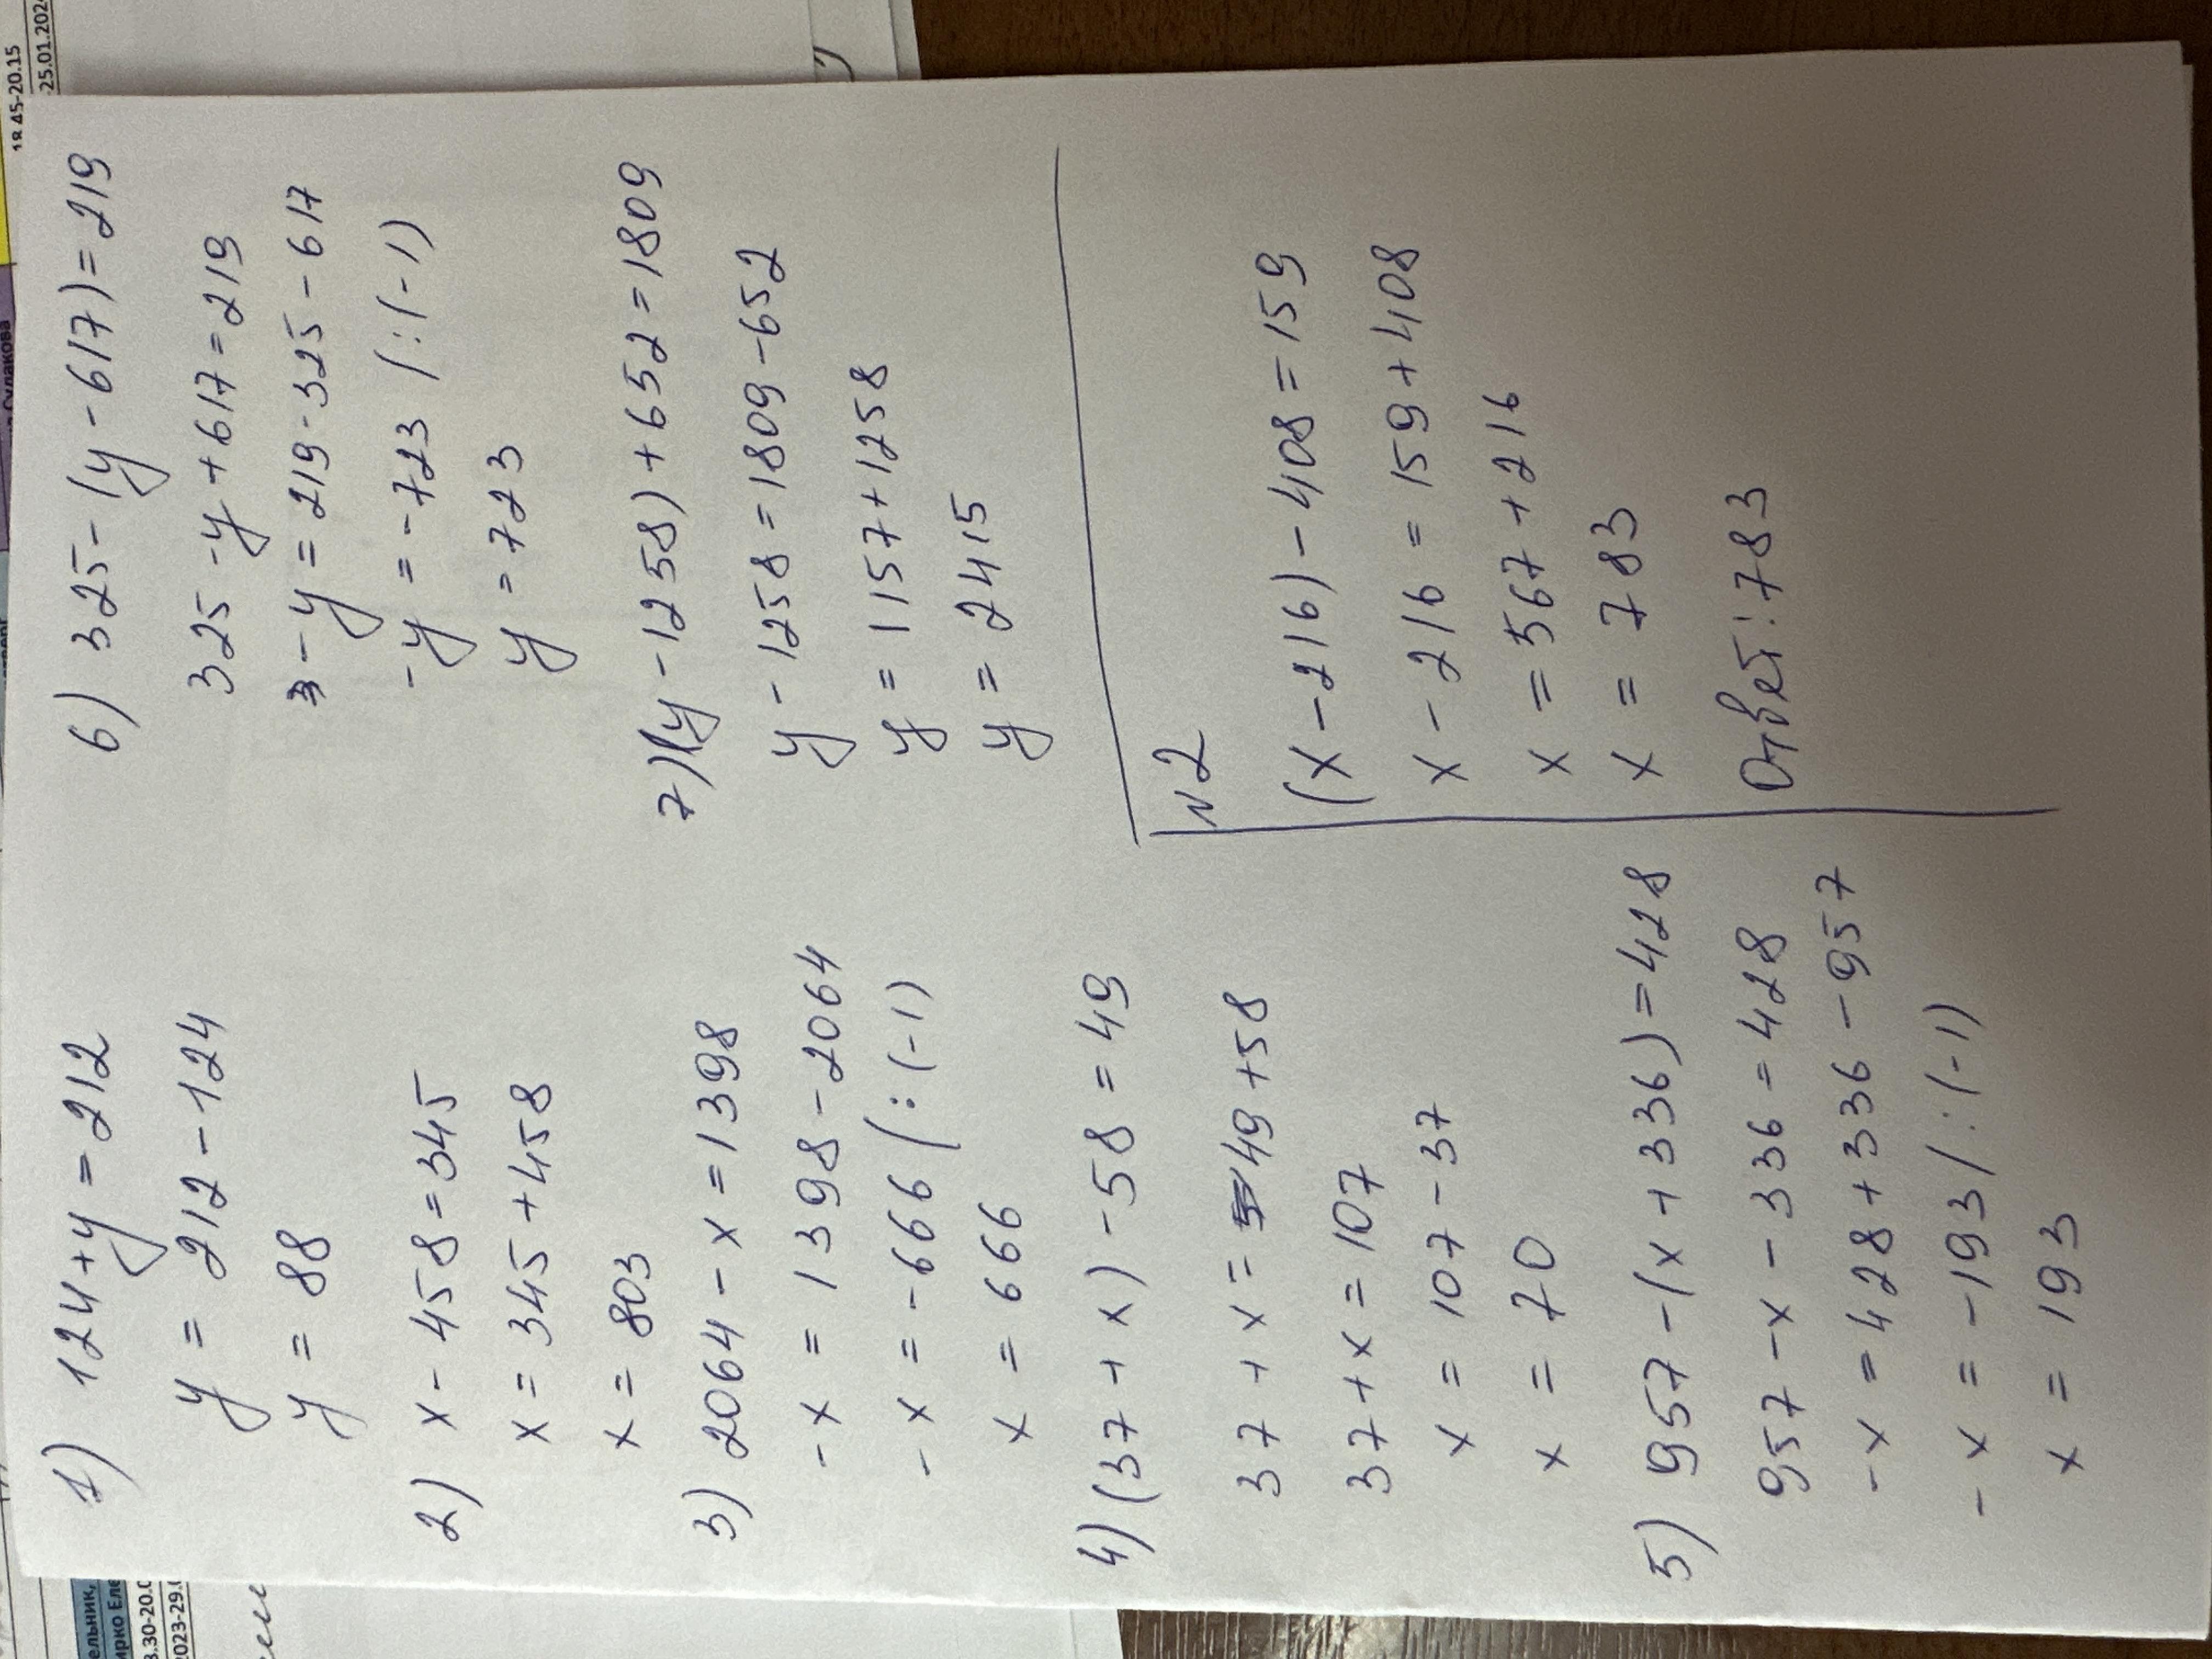 1) 124+y=212
y = 212-124
y = 88
2) x-458=345
x=345+458
x=803
3) 2064-x=1398
-x=1398-2064
-x=-666 /:(-1)
x=666
4) (37+x)-58=49
37+x=49+58
37+x=107
x=107-37
x=70
5) 957-(x+336)=428
957-x-336=428
-x=428+336-957
-x=-193/:(-1)
x=193
6) 325-(y-617)=219
325-y+617=219
-y=219-325-617
-y=-723 /:(-1)
y=723
7) (y-1258)+652=1809
y-1258=1809-652
y=1157+1258
y=2415
N2
(x-216)-408=159
x-216=159+408
x=567+216
x=783
Ответ:783
18.45-20.15
25.01.202
ельник,
ирко Еле
3.30-20.0
2023-29.